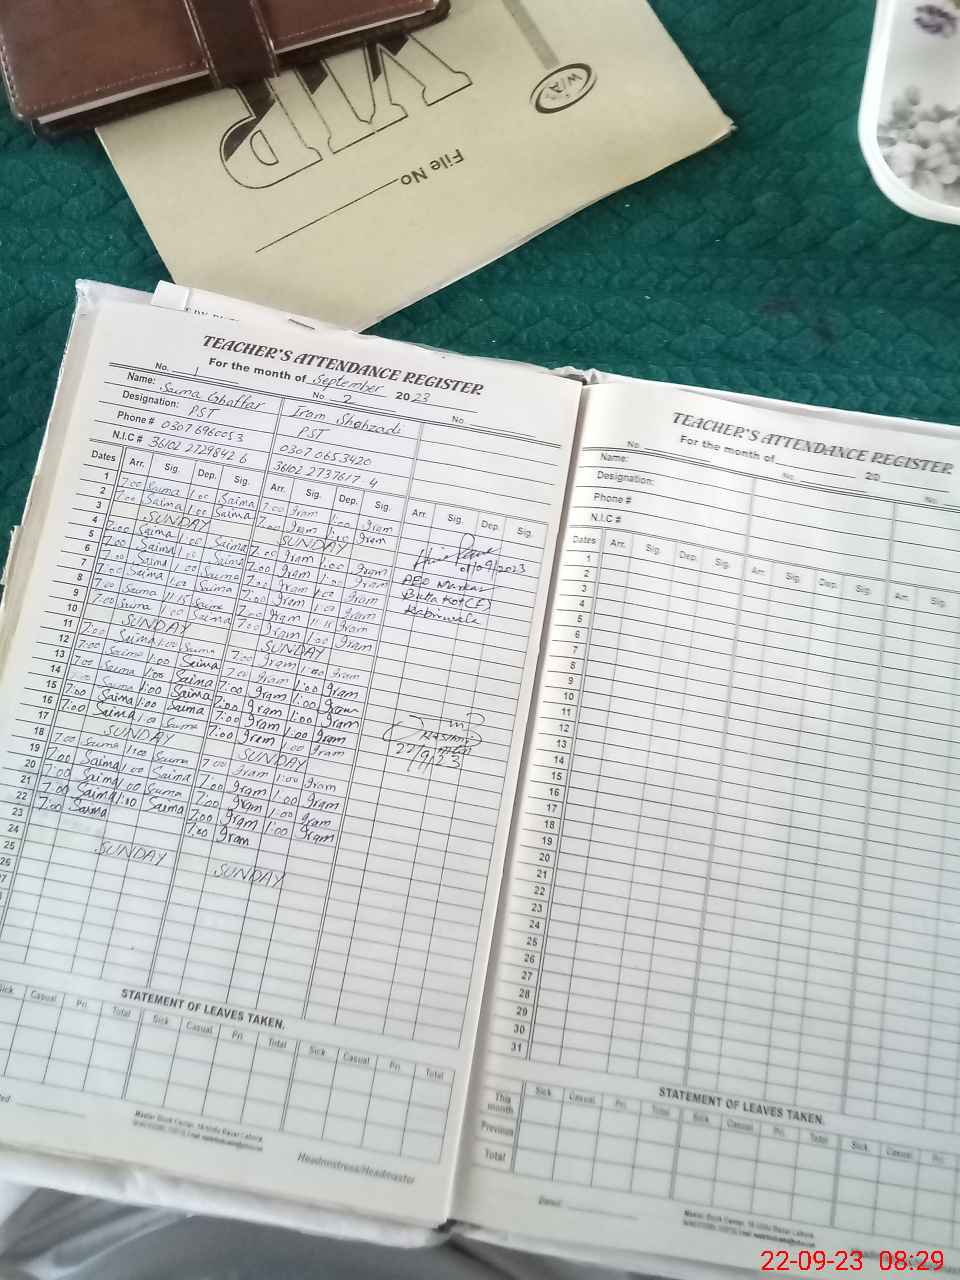 VIP
W/A
File No
TEACHER'S ATTENDANCE REGISTER
For the month of September 2023
No. 1 No 2 No.
Name: Saima Ghaffar Iram Shahzadi
Designation: PST PST
Phone # 0307 6960053 0307 0653420
N.I.C # 36102 2729842 6 36102 2737617 4
Dates Arr. Sig. Dep. Sig. Arr. Sig. Dep. Sig. Arr. Sig. Dep. Sig.
1 7:00 Saima 1:00 Saima 7:00 Iram 1:00 Iram
2 7:00 Saima 1:00 Saima 7:00 Iram 1:00 Iram
3 SUNDAY SUNDAY
4 7:00 Saima 1:00 Saima 7:00 Iram 1:00 Iram
01/09/2023
5 7:00 Saima 1:00 Saima 7:00 Iram 1:00 Iram
AEO Markaz
6 7:00 Saima 1:00 Saima 7:00 Iram 1:00 Iram
7 7:00 Saima 1:00 Saima 7:00 Iram 1:00 Iram
8 7:00 Saima 11:15 Saima 7:00 Iram 11:15 Iram
9 7:00 Saima 1:00 Saima 7:00 Iram 1:00 Iram
10 SUNDAY SUNDAY
11 7:00 Saima 1:00 Saima 7:00 Iram 1:00 Iram
12 7:00 Saima 1:00 Saima 7:00 Iram 1:00 Iram
13 7:00 Saima 1:00 Saima 7:00 Iram 1:00 Iram
14 Saima 1:00 Saima 7:00 Iram 1:00 Iram
15 7:00 Saima 1:00 Saima 7:00 Iram 1:00 Iram
16 7:00 Saima 1:00 Saima 7:00 Iram 1:00 Iram
22/9/23
17 SUNDAY SUNDAY
18 7:00 Saima 1:00 Saima 7:00 Iram 1:00 Iram
19 7:00 Saima 1:00 Saima 7:00 Iram 1:00 Iram
20 7:00 Saima 1:00 Saima 7:00 Iram 1:00 Iram
21 7:00 Saima 1:00 Saima 7:00 Iram 1:00 Iram
22 7:00 Saima 7:00 Iram
23
24 SUNDAY SUNDAY
25
26
STATEMENT OF LEAVES TAKEN.
Sick Casual Pri. Total Sick Casual Pri. Total Sick Casual Pri. Total
Headmistress/Headmaster
TEACHER'S ATTENDANCE REGISTER
For the month of 20
No. No. No.
Name:
Designation:
Phone #
N.I.C #
Dates Arr. Sig. Dep. Sig. Arr. Sig. Dep. Sig. Arr. Sig.
1
2
3
4
5
6
7
8
9
10
11
12
13
14
15
16
17
18
19
20
21
22
23
24
25
26
27
28
29
30
31
STATEMENT OF LEAVES TAKEN.
Sick Casual Pri. Total Sick Casual Pri. Total Sick Casual Pri.
This month
Previous
Total
Dated
22-09-23 08:29